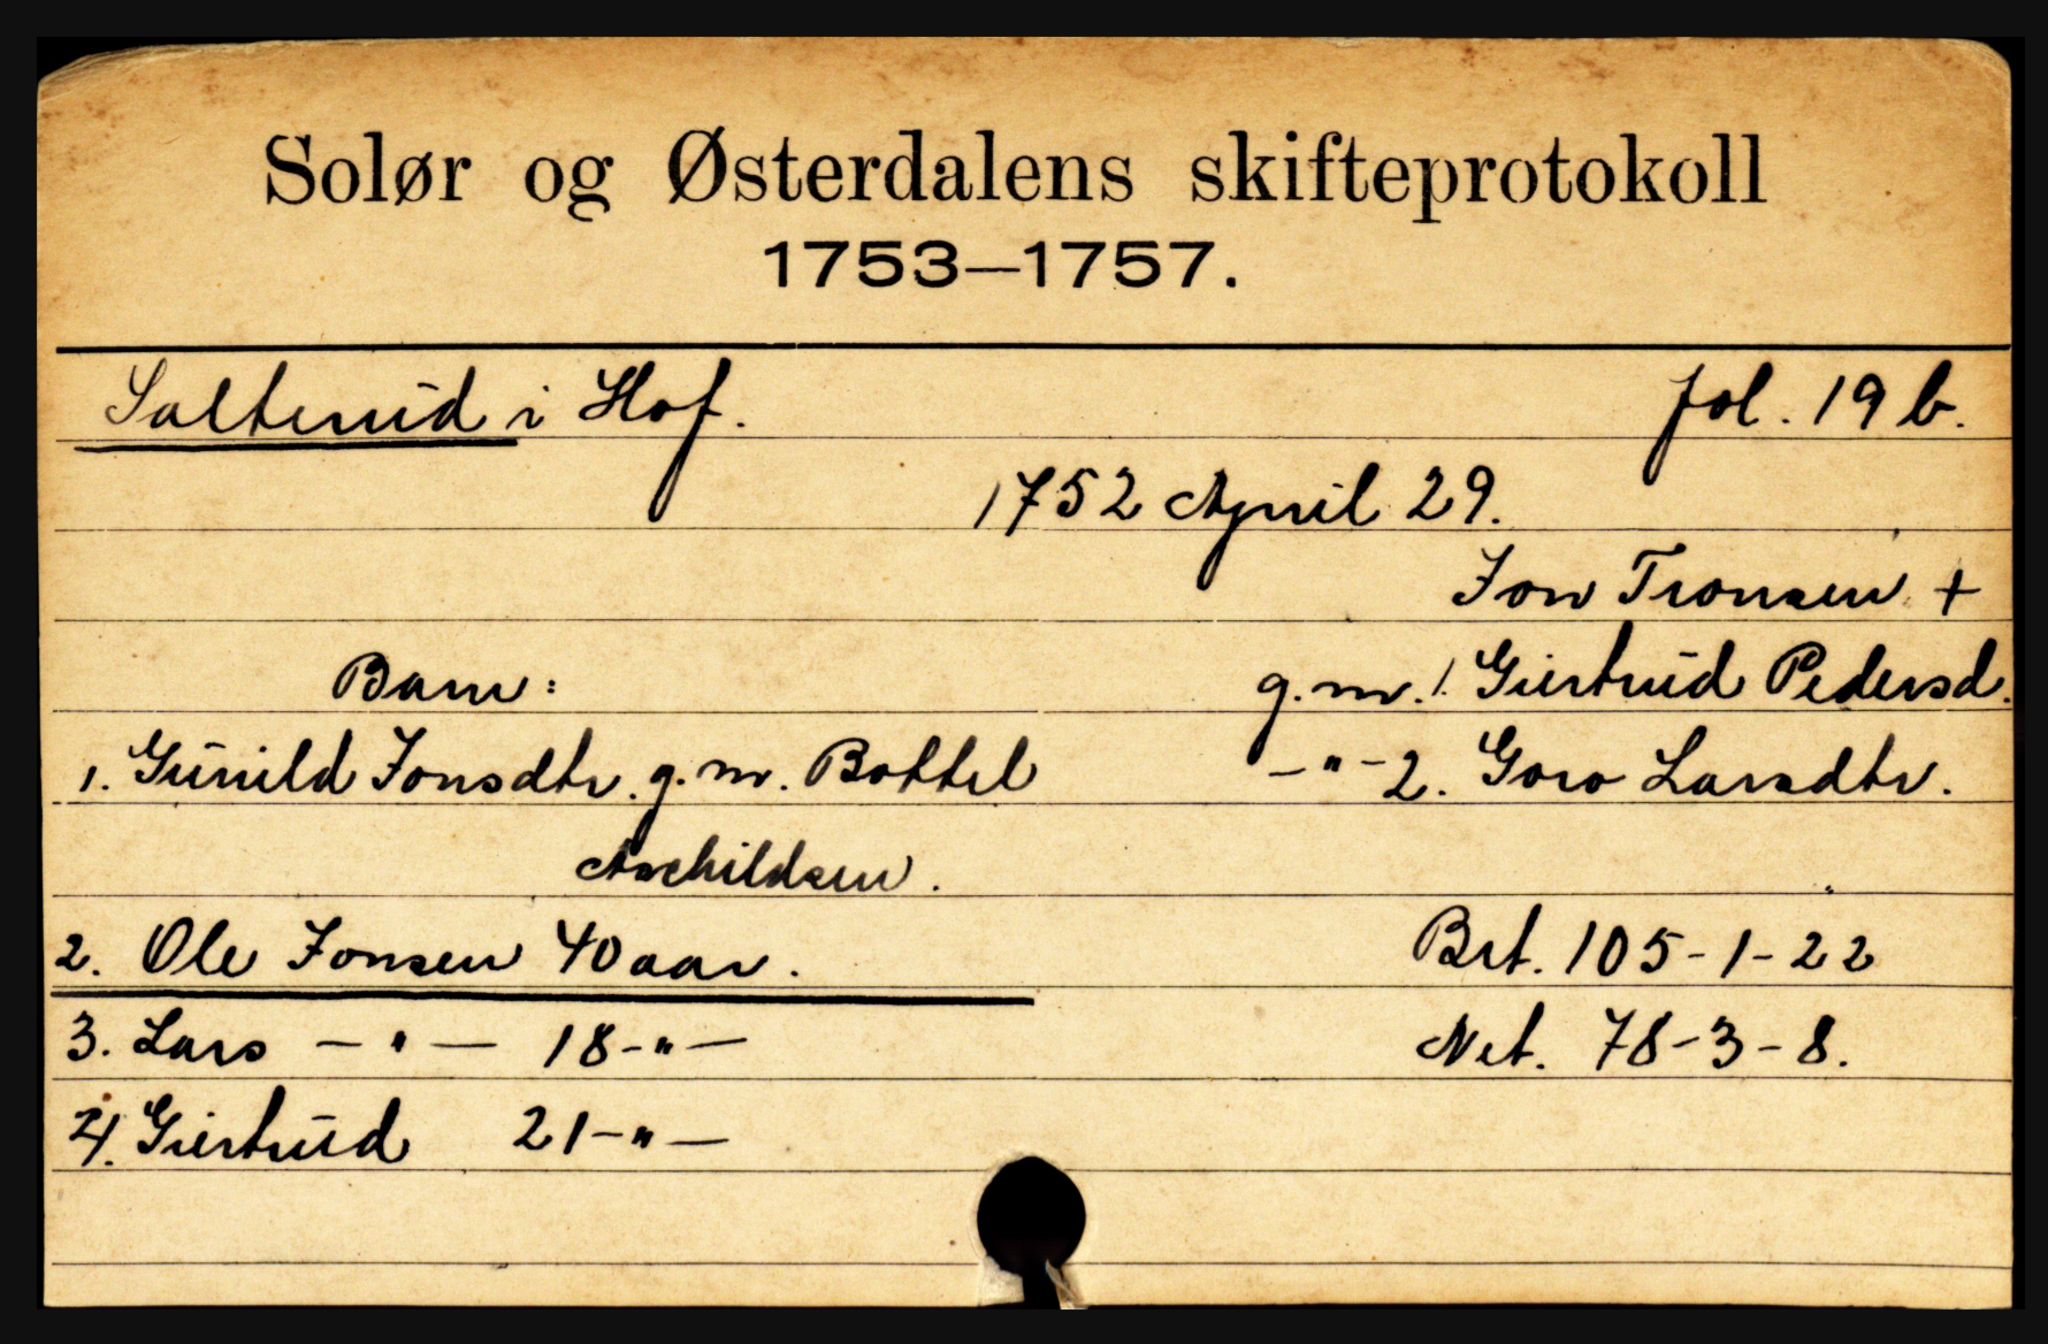 Solør og Østerdalens skifteprotokoll
1753—1757.
Salterud i Hof. fol. 19 b.
1752 April 29.
Jon Tronsen +
Barn: g. m. 1. Giertrud Pedersd.
1. Gunild Jonsdtr. g. m. Bottel -"- 2. Goro Larsdtr.
Aschildsen.
2. Ole Jonsen 40 aar. Brt. 105-1-22
3. Lars -"- 18 -"- Net. 78-3-8.
4. Giertrud 21 -"-